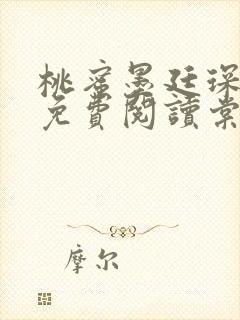 桃蜜墨廷深
免費閱讀棠
摩尔